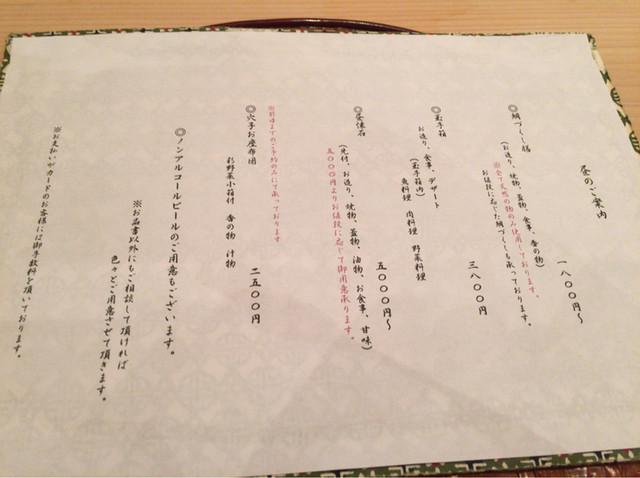 昼のご案内
◎鯛づくし膳 一八〇〇円～
(お造り、焼物、蓋物、食事、香の物)
※全て天然の物のみ使用しております。
お値段に応じた鯛づくしも承っております。
◎玉手箱 三八〇〇円
お造り、食事、デザート
(玉手箱内) 魚料理 肉料理 野菜料理
◎昼懐石 五〇〇〇円～
(先付、お造り、焼物、蓋物、油物、お食事、甘味)
五〇〇〇円よりお値段に応じて御用意承ります。
※前日までのご予約のみにて承っております
◎穴子お座布団 二五〇〇円
彩野菜小箱付 香の物 汁物
◎ノンアルコールビールのご用意もございます。
※お品書以外にもご相談して頂ければ
色々とご用意させて頂きます。
※お支払いがカードのお客様には御手数料を頂いております。